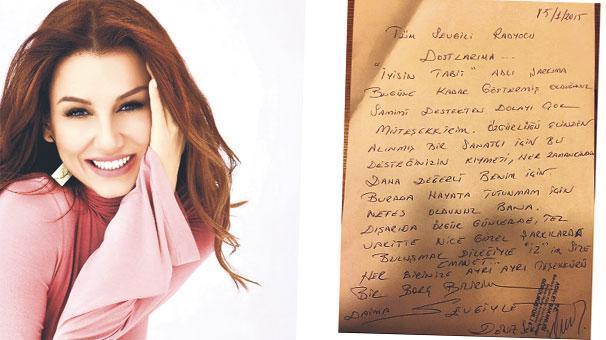 15/1/2015
TÜM SEVGİLİ RADYOCU
DOSTLARIMA...
"İYİSİN TABİİ" ADLI ŞARKIMA
BUGÜNE KADAR GÖSTERMİŞ OLDUĞUNUZ
SAMİMİ DESTEKTEN DOLAYI ÇOK
MÜTEŞEKKİRİM. ÖZGÜRLÜĞÜ ELİNDEN
ALINMIŞ BİR SANATÇI İÇİN BU
DESTEĞİNİZİN KIYMETİ, HER ZAMANKİNDEN
DAHA DEĞERLİ BENİM İÇİN
BURADA HAYATA TUTUNMAM İÇİN
NEFES OLDUNUZ BANA.
DIŞARIDA ÖZGÜR GÜNLERDE, TEZ
VAKİTTE NİCE GÜZEL ŞARKILARDA
BULUŞMAK DİLEĞİYLE "İZ"İM SİZE
EMANET...
HER BİRİNİZE AYRI AYRI TEŞEKKÜRÜ
BİR BORÇ BİLİRİM
DAİMA SEVGİYLE
DENİZ SEKİ